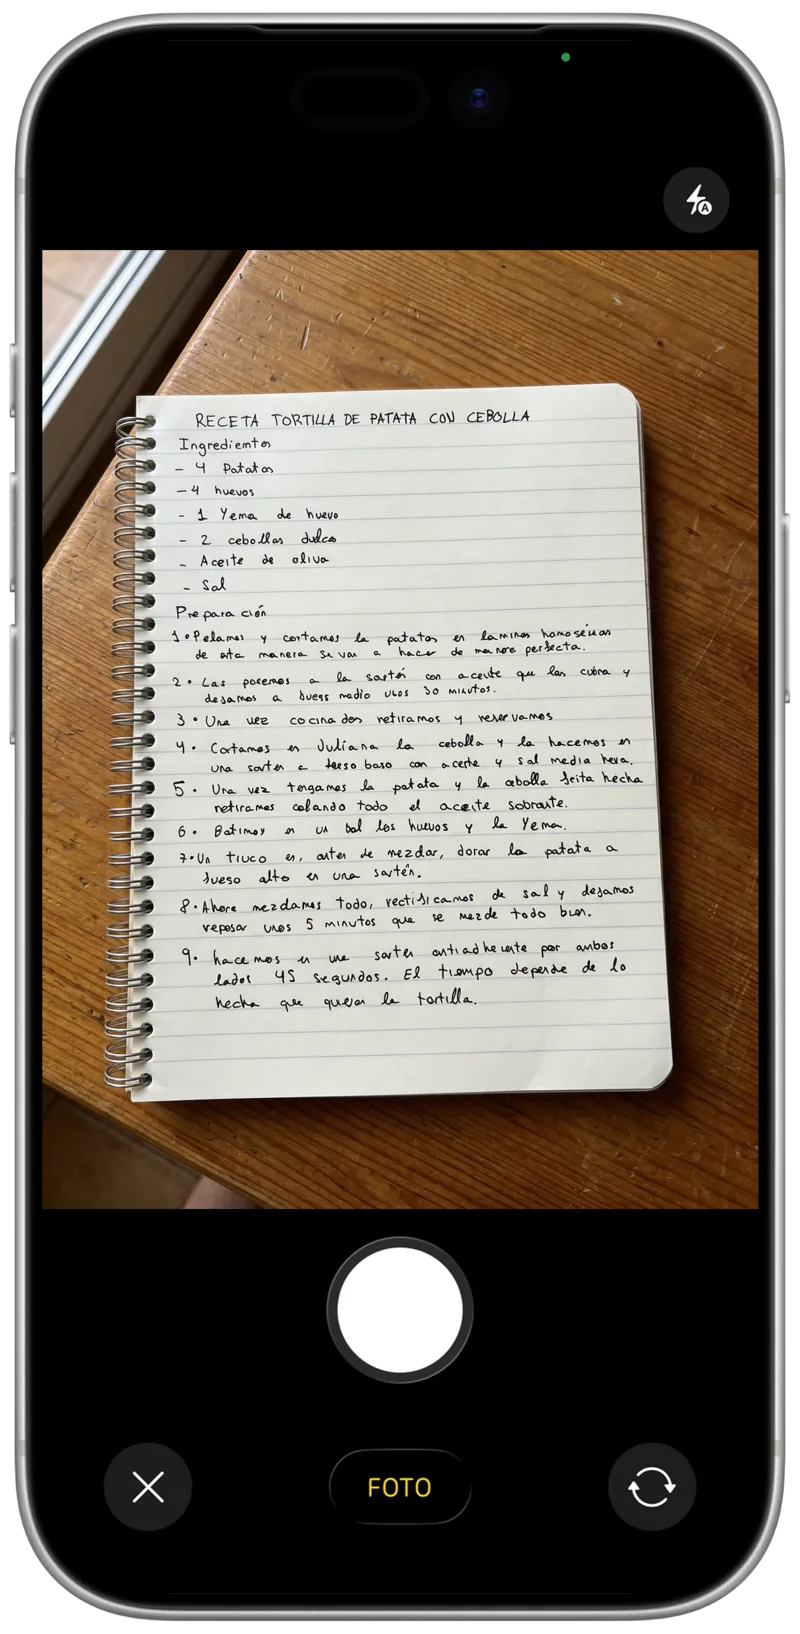 RECETA TORTILLA DE PATATA CON CEBOLLA
Ingredientes
- 4 Patatas
- 4 huevos
- 1 Yema de huevo
- 2 cebollas dulces
- Aceite de oliva
- Sal
Preparación
1. Pelamos y cortamos la patatas en laminas homogéneas
de esta manera se van a hacer de manera perfecta.
2. Las ponemos a la sartén con aceite que las cubra y
dejamos a fuego medio unos 30 minutos.
3. Una vez cocinados retiramos y reservamos
4. Cortamos en Juliana la cebolla y la hacemos en
una sarten a fuego bajo con aceite y sal media hora.
5. Una vez tengamos la patata y la cebolla frita hecha
retiramos colando todo el aceite sobrante.
6. Batimos en un bol los huevos y la Yema.
7. Un truco es, antes de mezclar, dorar la patata a
fuego alto en una sartén.
8. Ahora mezclamos todo, rectificamos de sal y dejamos
reposar unos 5 minutos que se mezcle todo bien.
9. hacemos en una sarten antiadherente por ambos
lados 45 segundos. El tiempo depende de lo
hecha que queran la tortilla.
FOTO